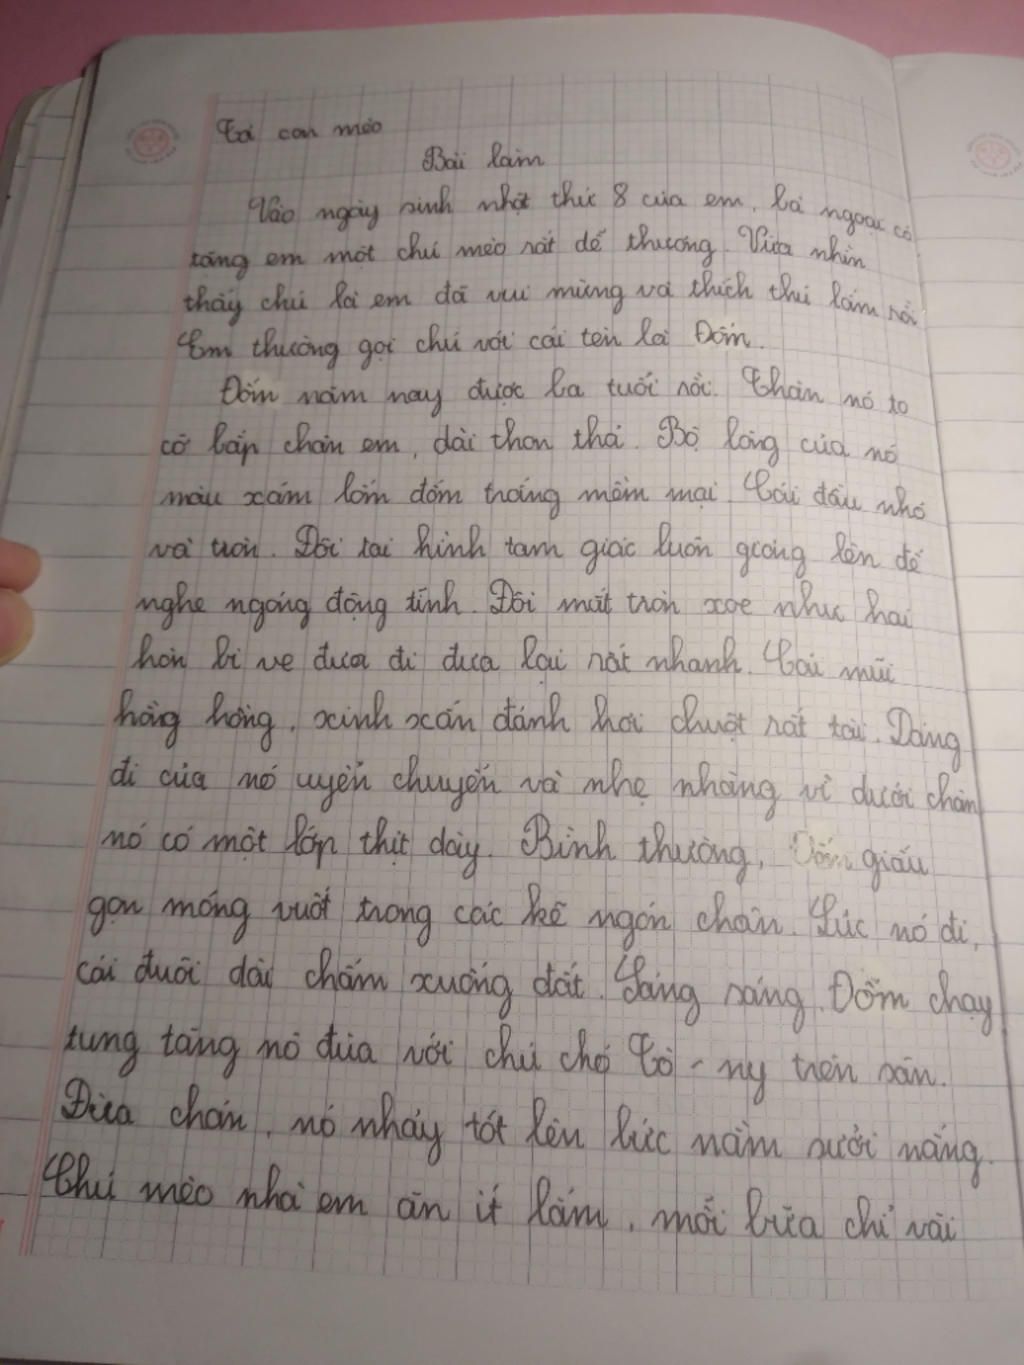 Tả con mèo
Bài làm
Vào ngày sinh nhật thứ 8 của em, bà ngoại có
tặng em một chú mèo rất dễ thương. Vừa nhìn
thấy chú là em đã vui mừng và thích thú lắm rồi
Em thường gọi chú với cái tên là Đốm.
Đốm năm nay được ba tuổi rồi. Thân nó to
cỡ bắp chân em, dài thon thả. Bộ lông của nó
màu xám lốm đốm trắng mềm mại. Cái đầu nhỏ
và tròn. Đôi tai hình tam giác luôn giương lên để
nghe ngóng động tĩnh. Đôi mắt tròn xoe như hai
hòn bi ve đưa đi đưa lại rất nhanh. Cái mũi
hồng hồng, xinh xắn đánh hơi chuột rất tài. Dáng
đi của nó uyển chuyển và nhẹ nhàng vì dưới chân
nó có một lớp thịt dày. Bình thường, Đốm giấu
gọn móng vuốt trong các kẽ ngón chân. Lúc nó đi,
cái đuôi dài chấm xuống đất. Sáng sáng, Đốm chạy
tung tăng nô đùa với chú chó Tô - ny trên sân.
Đùa chán, nó nhảy tót lên bục nằm sưởi nắng.
Chú mèo nhà em ăn ít lắm, mỗi bữa chỉ vài